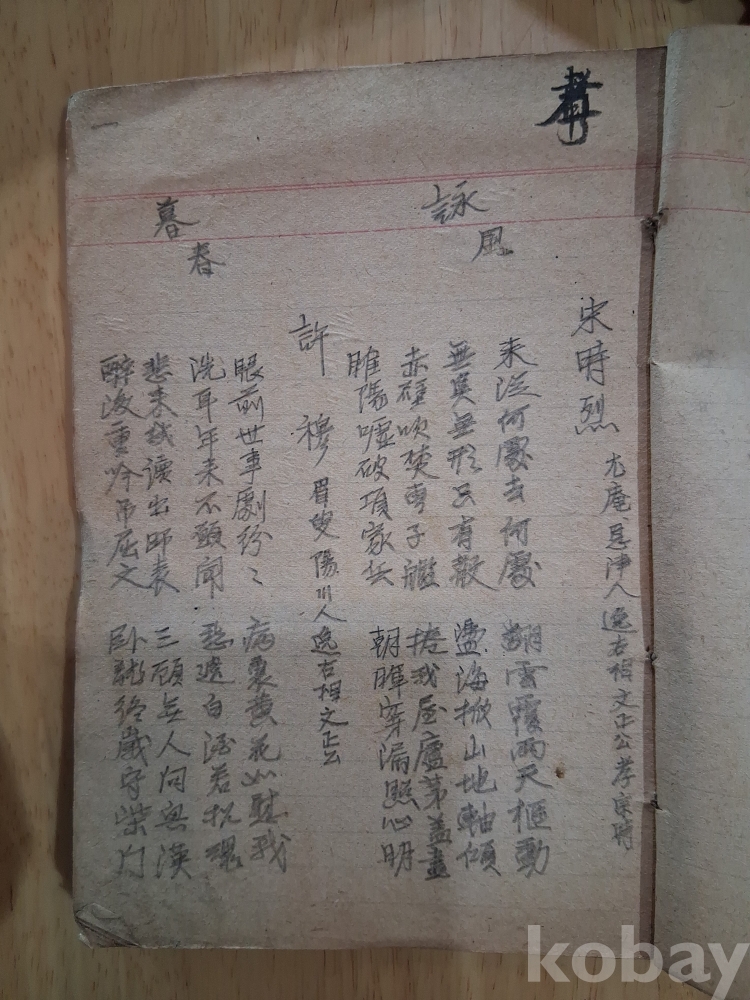 詠風
宋時烈 尤庵恩津人逸右相文正公孝宗時
來從何處去何處 翻雲覆雨天樞動
無臭無形只有聲 盪海掀山地軸傾
赤壁吹焚曺子艦 捲我屋廬茅蓋盡
睢陽噓破項家兵 朝暉穿漏照心明
暮春
許穆 眉叟陽川人逸右相文正公
眼前世事劇紛〻 病裏黃花如慰我
洗耳年來不願聞 愁邊白酒若招魂
悲來試讀出師表 三顧無人問興漢
醉後重吟吊屈文 臥龍終歲守柴門
kobay